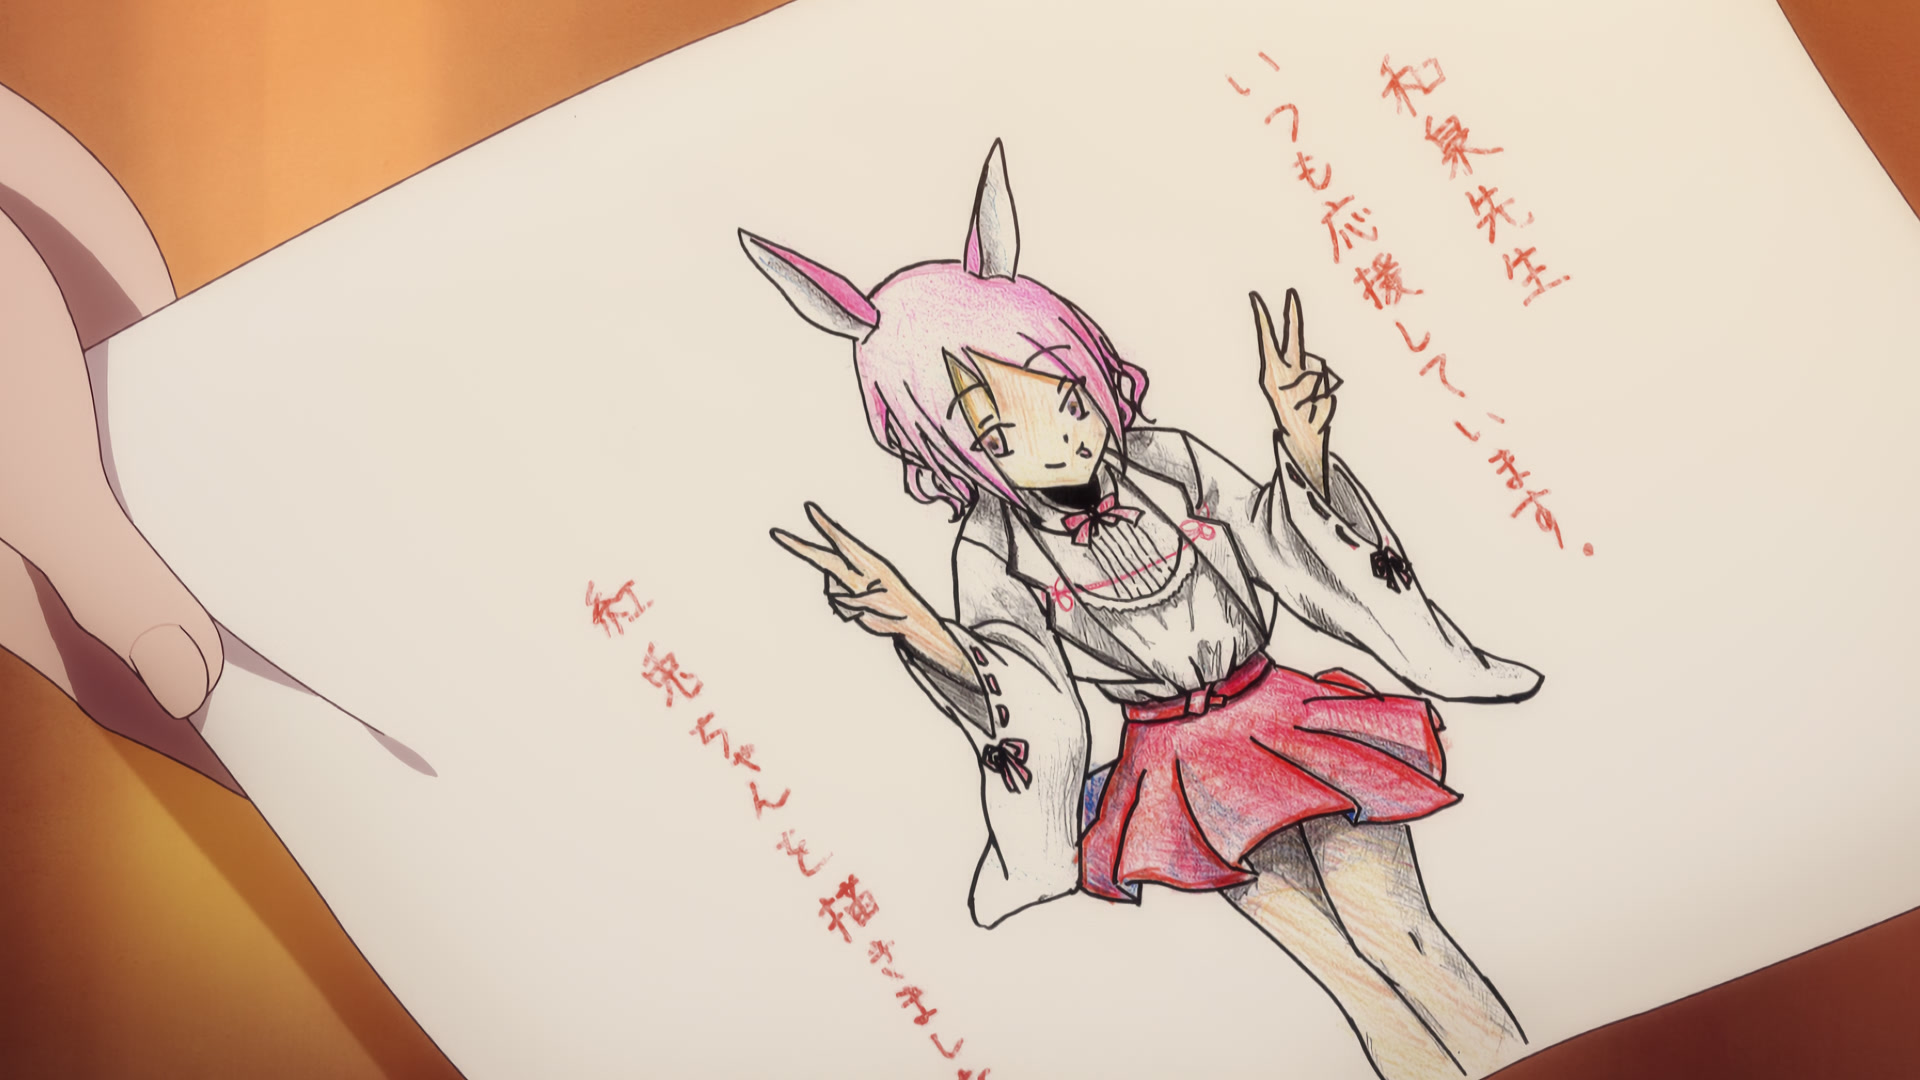 和泉先生
いつも応援しています。
紅兎ちゃんを描きまし